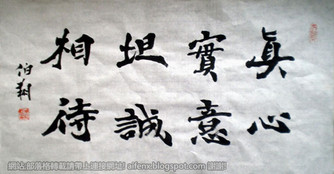 真心
實意
坦誠
相待
伯翔
網站部落格轉載請帶上連接網址! aifeneblogspot.com 謝謝!